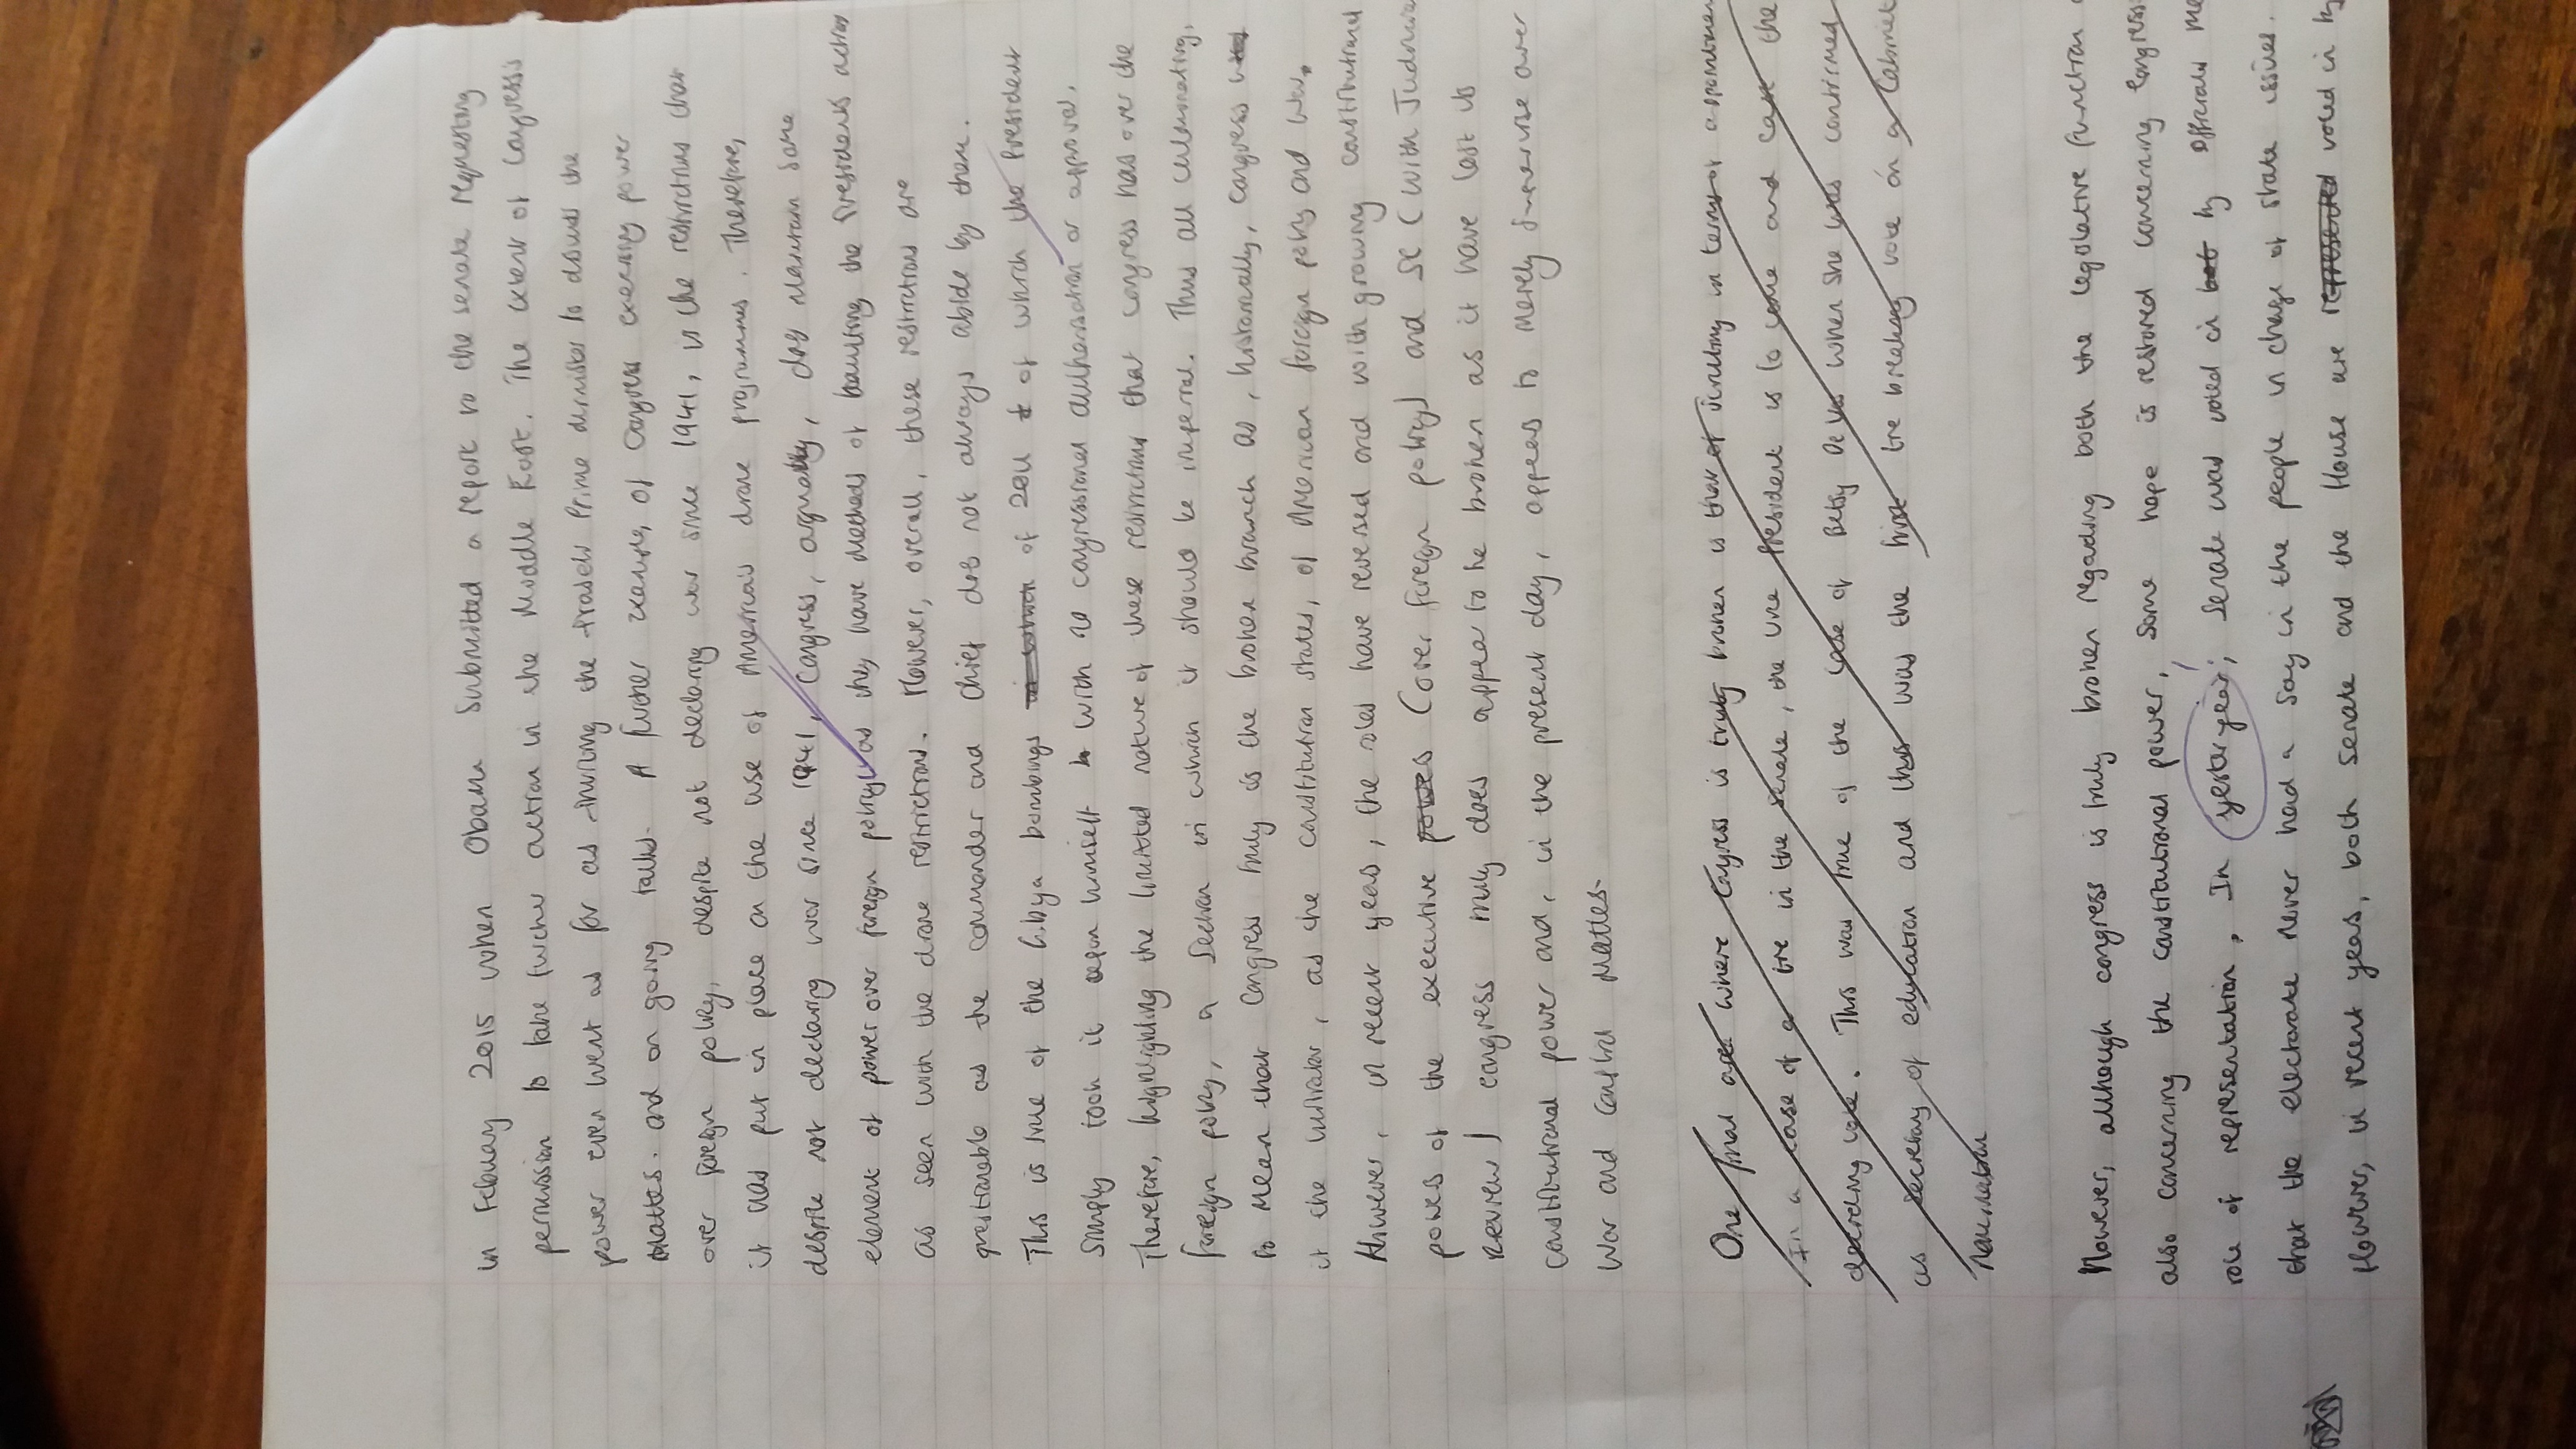 in February 2015 when Obama submitted a report to the senate requesting
permission to take further action in the Middle East. The extent of Congress's
power even went as far as inviting the Israeli Prime Minister to discuss the
matters. and on going talks. A further example, of Congress exerting power
over foreign policy, despite not declaring war since 1941, is the restrictions that
it has put in place on the use of America's drone programmes. Therefore,
despite not declaring war since 1941, Congress, arguably, does maintain some
element of power over foreign policy as they have methods of limiting the Presidents action
as seen with the drone restrictions. However, overall, these restrictions are
questionable as the commander and chief does not always abide by them.
This is true of the Libya bombings in which of 2011 of which the President
simply took it upon himself with no congressional authorisation or approval.
Therefore, highlighting the limited nature of these restrictions that congress has over the
foreign policy, a section in which it should be imperal. Thus all culminating,
to mean that congress truly is the broken branch as, historically, congress
it the initiator, as the constitution states, of American foreign policy and war.
However, in recent years, the roles have reversed and with growing constitutional
powers of the executive powers (over foreign policy) and SC (with Judicial
Review) congress truly does appear to be broken as it have lost its
constitutional power and, in the present day, appears to merely supervise over
war and capital matters.
One final area where Congress is truly broken is that of scrutiny in terms of
In a case of a tie in the senate, the vice President is to come and cast the
deciding vote. This was true of the case of Betsy when she was confirmed
as secretary of education and this was the first tie breaking vote on a cabinet
nomination
However, although congress is truly broken regarding both the legislative function
also concerning the constitutional power, some hope is restored concerning
role of representation. In yesteryear, senate was voted in but by officials
that the electorate never had a say in the people in charge of state issues.
However, in recent years, both senate and the House are represented voted in by